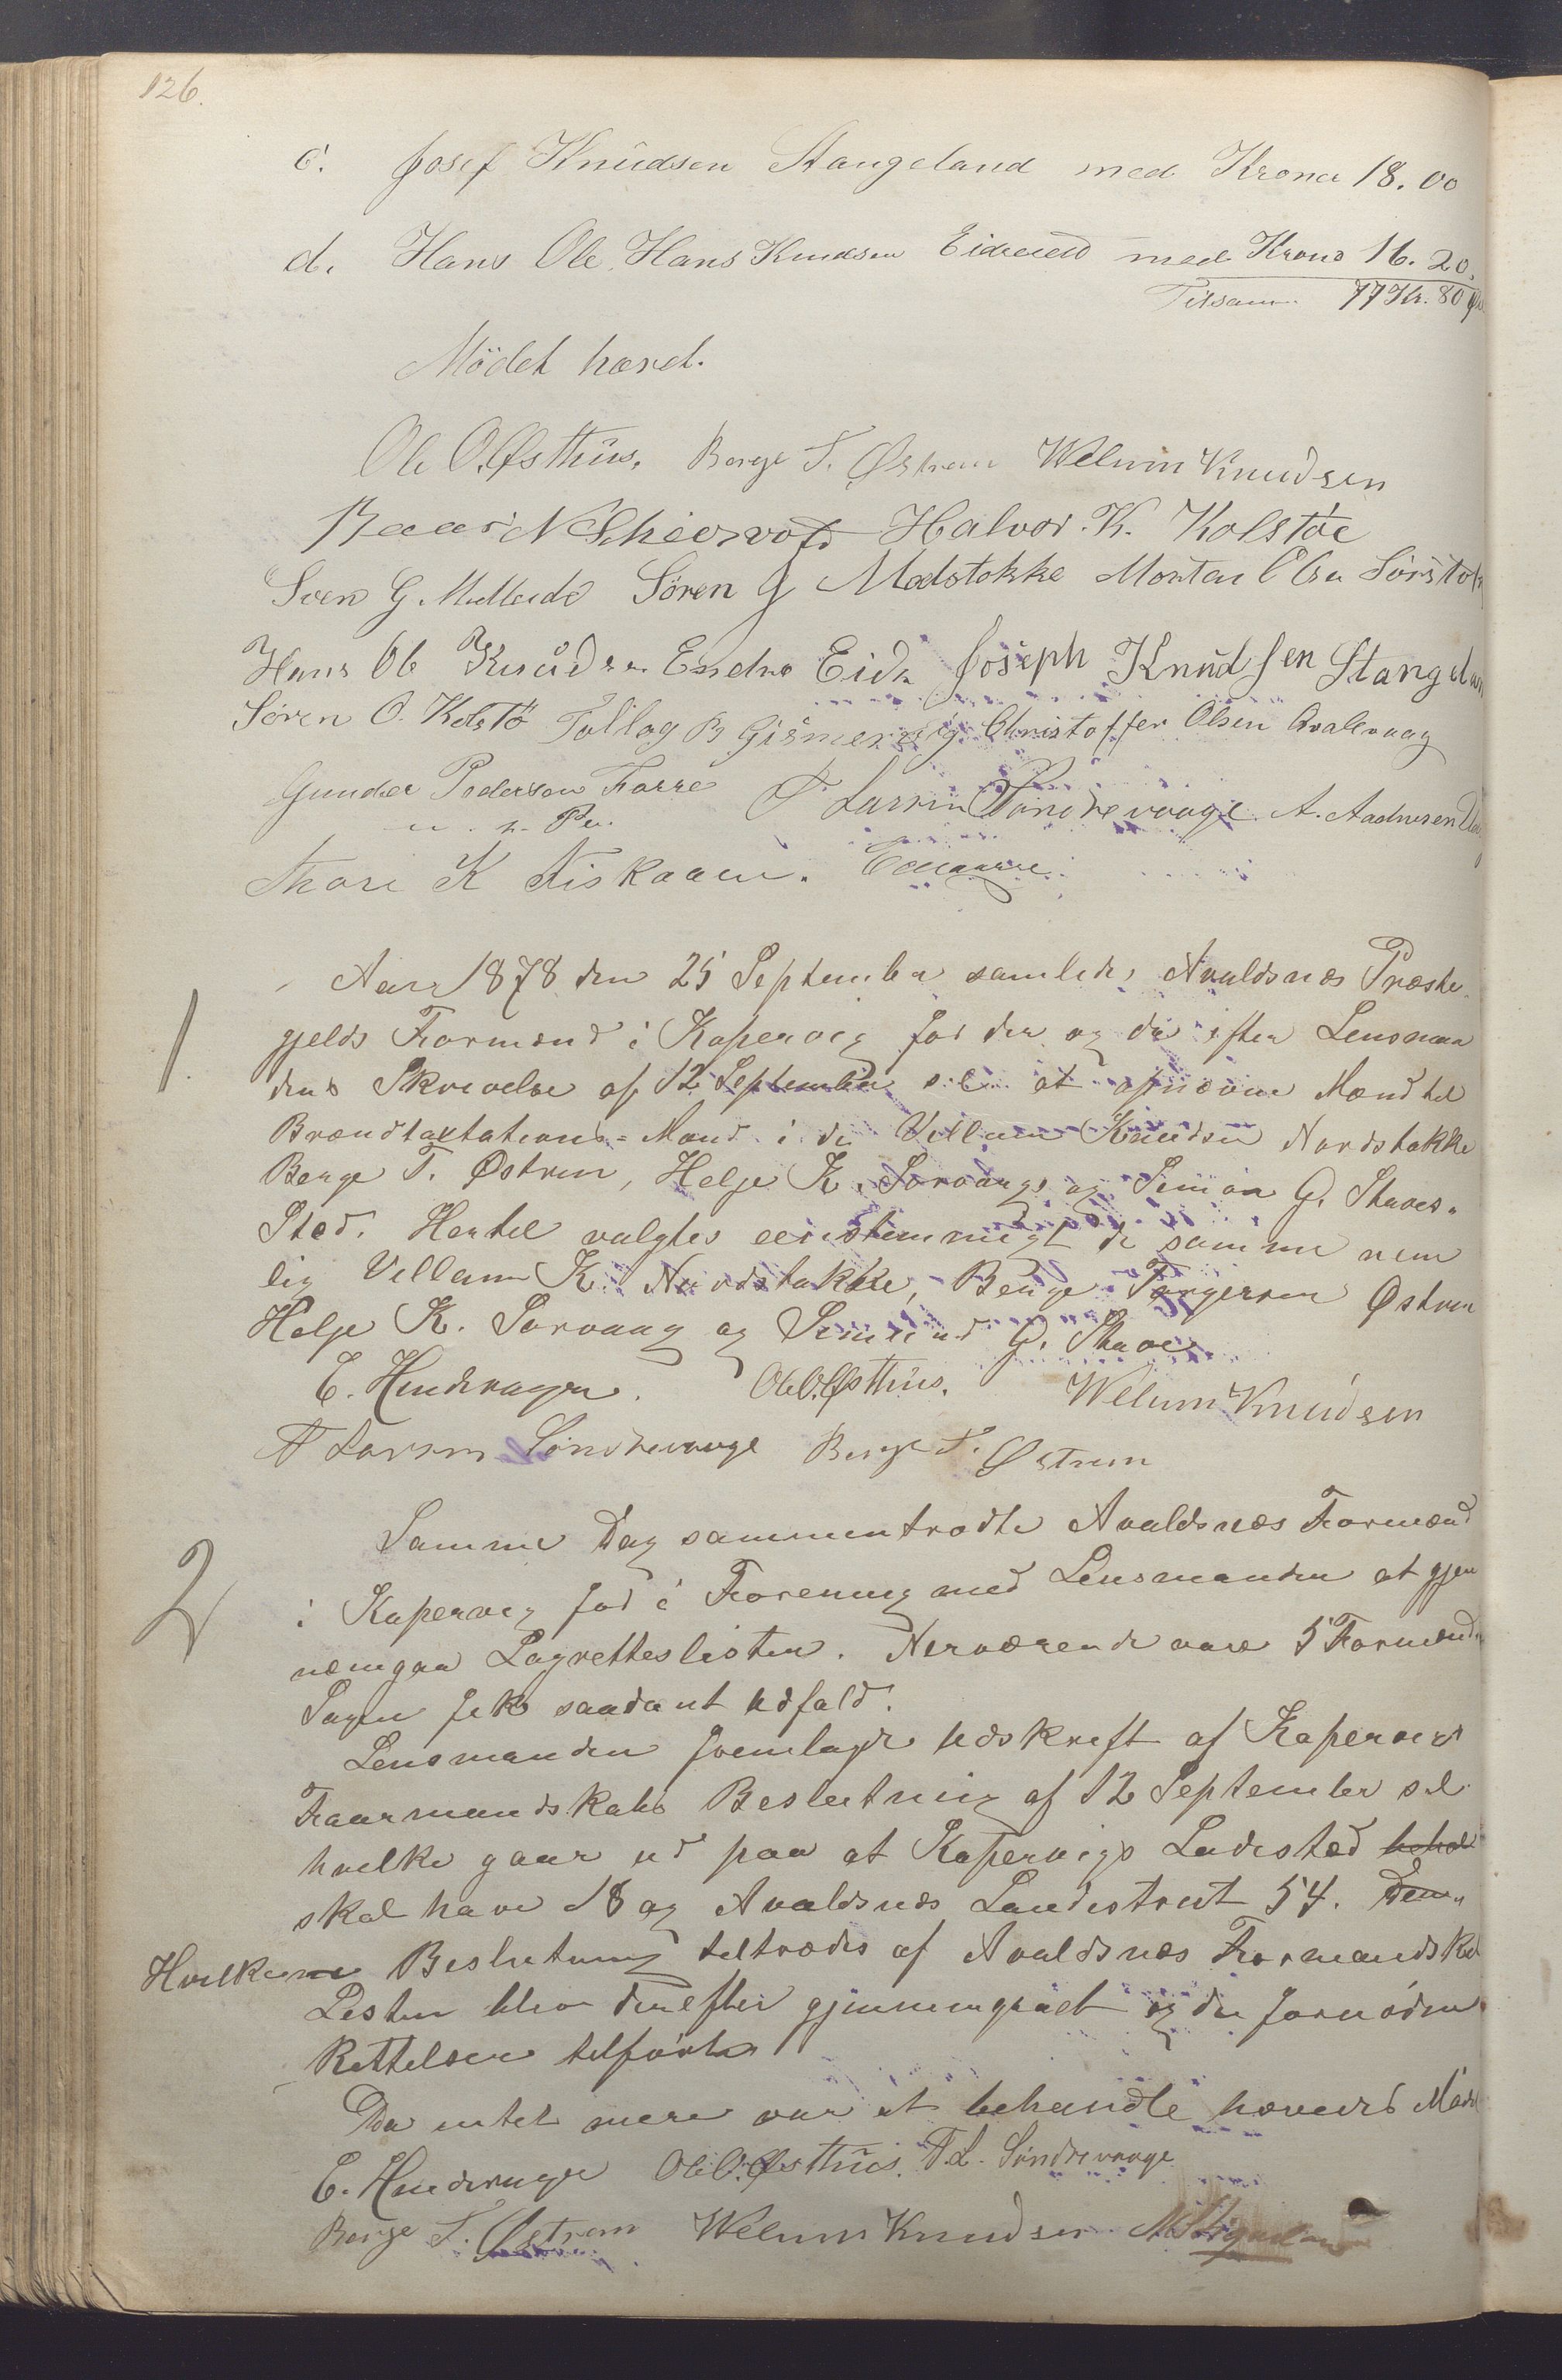 126.
c. Josef Knudsen Stangeland med Kroner 18.00
d. Hans Ole Hans Knudsen Eide med Krone 16.20.
Tilsam. 77 Kr. 80
Mødet hævet.
Ole O. Østhus. Børge T. Østrem Welum Knudsen
N Halvor K. Kolstøe
Sven G. Søren G Medstokke Morten Olsen Sørstok
Hans Ole Knudsen Endre Eide Joseph Knudsen Stangelan
Søren O. Kolstø Tollag B Gismervig Christoffer Olsen Qvalevaag
Gunder Pedersen Farre T Larsen Søndrevaage A. Aadnesen
m. p. Pen.
Thore K Fiskaaen.
1. Aar 1878 den 25 September samledes Avaldsnæs Præste
gjelds Formænd i Kopervig for der og da efter Lensman
dens Skrivelse af 12 September s. a. at opnævne Mænd til
Brandtaxtations-Mænd i de Villum Knudsen Nordstokke
Børge T. Østrem, Helje K. Sørvaage og Simon G. Stave's
Sted. Hertil valgtes eenstemmigt de samme nem
lig Villum K. Nordstokke, Børge Torgersen Østrem
Helje K. Sørvaag og Simond G. Stave
E. Hinderager. Ole O. Østhus. Welum Knudsen
T Larsen Søndrevaage Børge T. Østrem
2 Samme Dag sammentraadte Avaldsnæs Formænd
i Kopervig for i Forening med Lensmanden at gjen
nemgaa Lagretteslisten. Nærværende vare 5 Formænd
Sagen fik saadant Udfald.
Lensmanden fremlagde Udskrift af Kopervigs
Formandskabs Beslutning af 12 September s. a.
hvilke gaar ud paa at Kopervigs Ladested
skal have 18 og Avaldsnæs Landistrict 54. Den
Hvilken Beslutning tiltrædes af Avaldsnæs Formandskab
Listen blev derefter gjennemgaaet og de fornødne
Rettelser tilført
Da intet mere var at behandle hævedes Mødet
E. Hinderager Ole O. Østhus. T. L. Søndrevaage
Børge T. Østrem Welum Knudsen